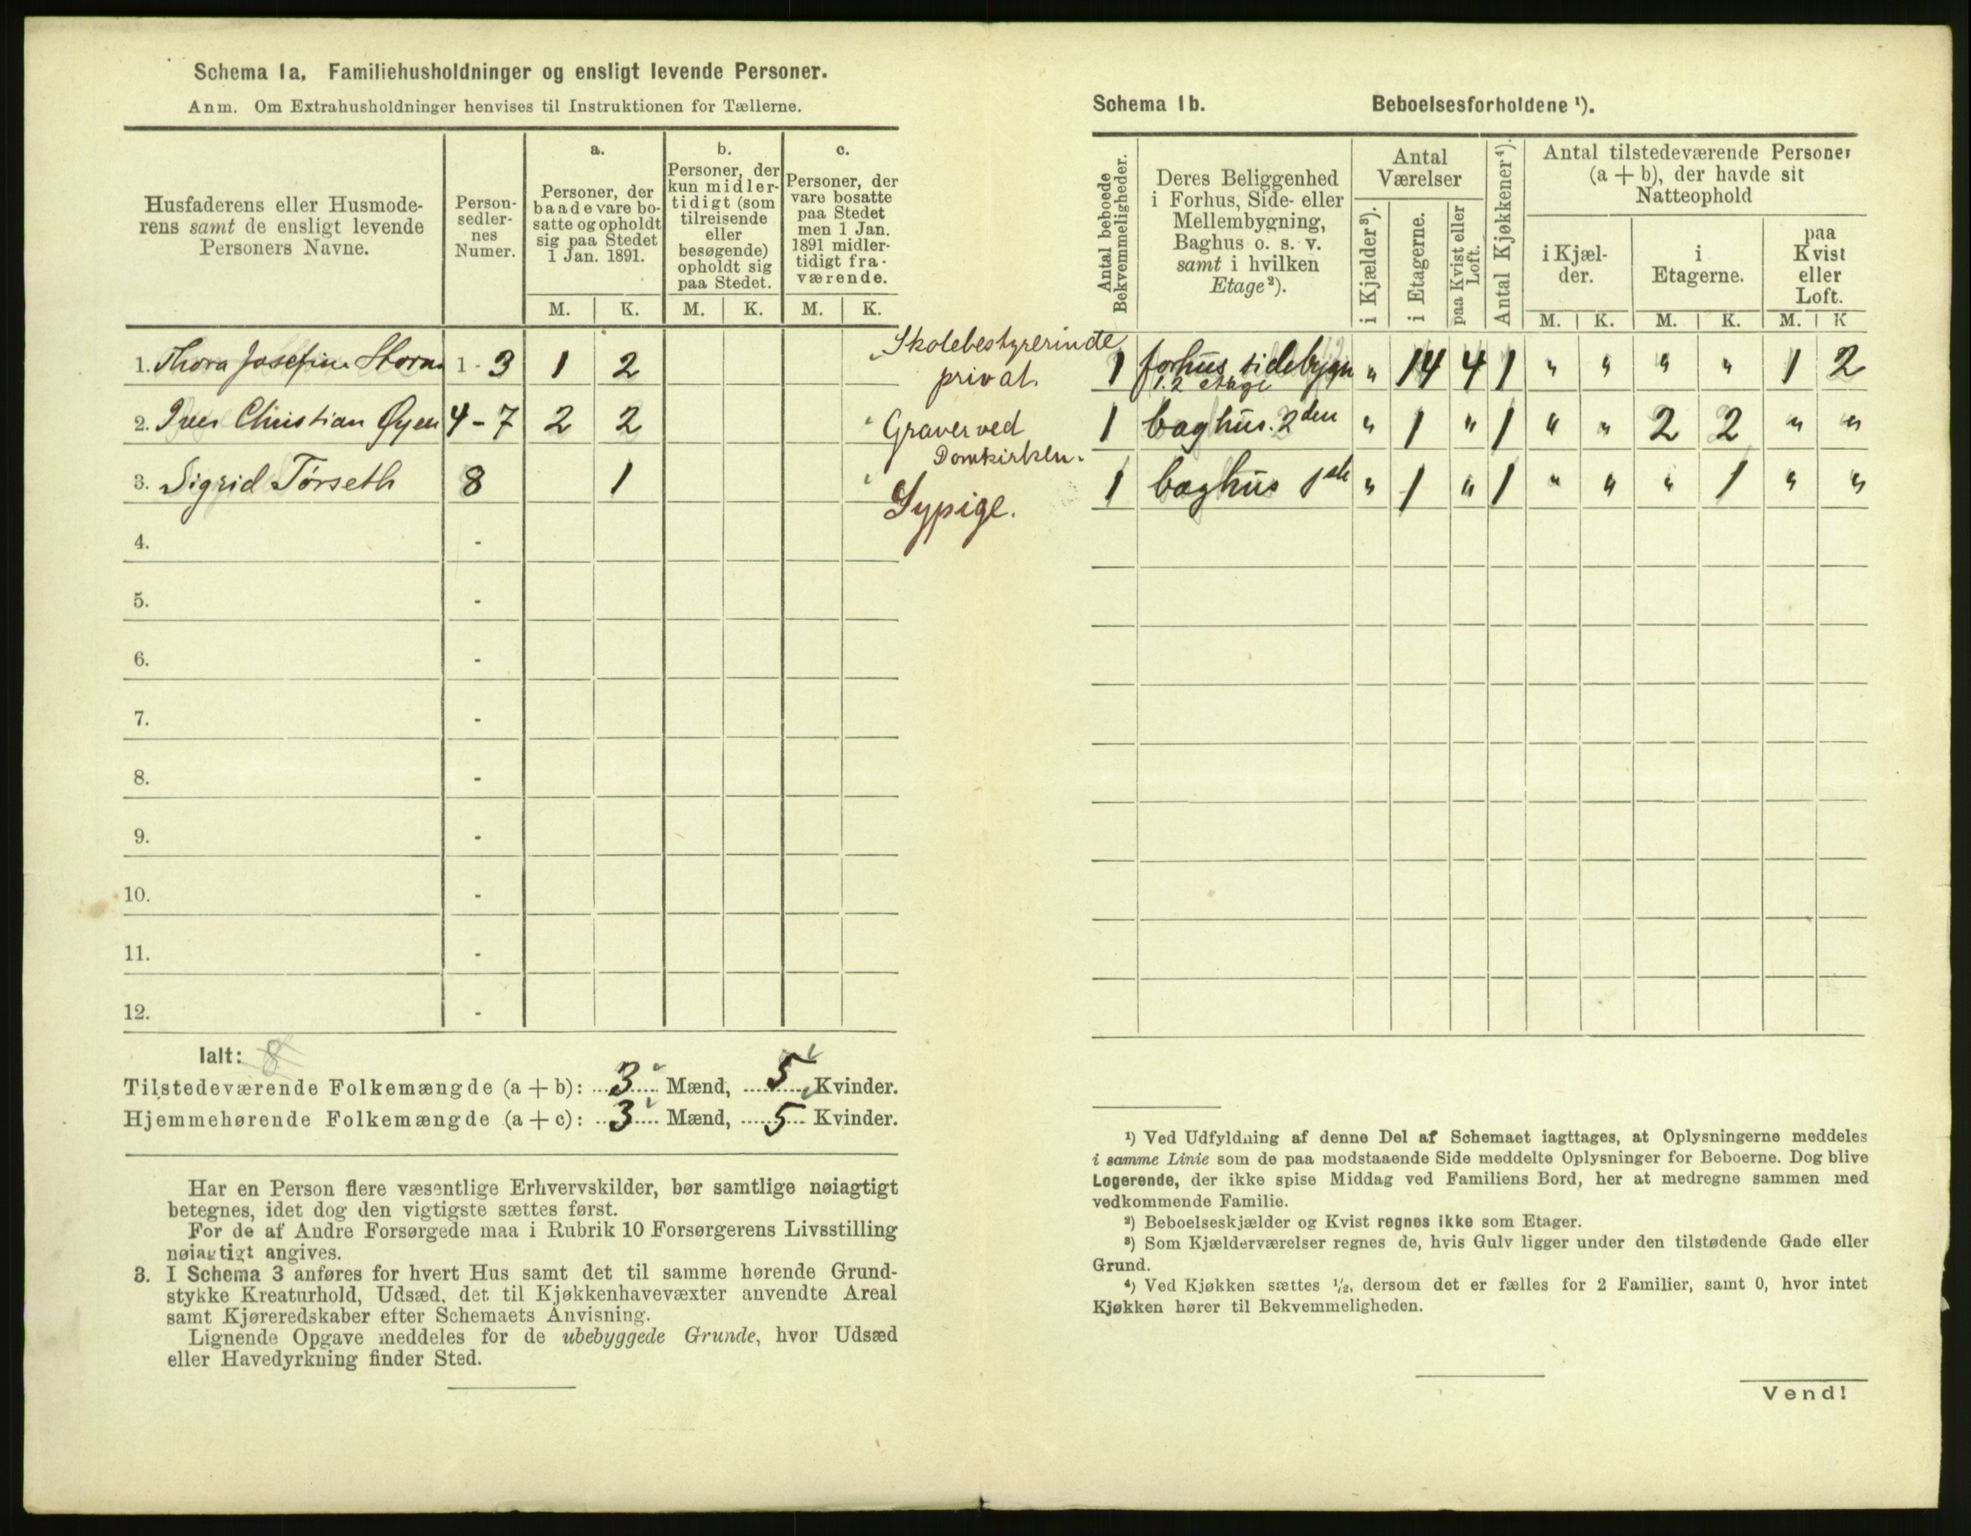 Schema 1a. Familiehusholdninger og ensligt levende Personer.
Anm. Om Extrahusholdninger henvises til Instruktionen for Tællerne.
Husfaderens eller Husmode-
rens samt de ensligt levende
Personers Navne.
Person-
sedler-
nes
Numer.
a.
Personer, der
baade vare bo-
satte og opholdt
sig paa Stedet
1 Jan. 1891.
b.
Personer, der
kun midler-
tidigt (som
tilreisende
eller
besøgende)
opholdt sig
paa Stedet.
c.
Personer, der
vare bosatte
paa Stedet
men 1 Jan.
1891 midler-
tidigt fra-
værende.
M. K. M. K. M. K.
1. Thora Josefine Storm 1 - 3 1 2 Skolebestyrerinde
privat
2. Iver Christian Øyen 4 - 7 2 2 Graver ved
Domkirken.
3. Sigrid Tørseth 8 1 Sypige.
4. -
5. -
6. -
7. -
8. -
9. -
10. -
11. -
12. -
Ialt: 8
Tilstedeværende Folkemængde (a + b): 3 Mænd, 5 Kvinder.
Hjemmehørende Folkemængde (a + c): 3 Mænd, 5 Kvinder.
Har en Person flere væsentlige Erhvervskilder, bør samtlige nøiagtigt
betegnes, idet dog den vigtigste sættes først.
For de af Andre Forsørgede maa i Rubrik 10 Forsørgerens Livsstilling
nøiagtigt angives.
3. I Schema 3 anføres for hvert Hus samt det til samme hørende Grund-
stykke Kreaturhold, Udsæd, det til Kjøkkenhavevæxter anvendte Areal
samt Kjøreredskaber efter Schemaets Anvisning.
Lignende Opgave meddeles for de ubebyggede Grunde, hvor Udsæd
eller Havedyrkning finder Sted.
Schema 1b. Beboelsesforholdene ¹).
Antal beboede
Bekvemmeligheder.
Deres Beliggenhed
i Forhus, Side- eller
Mellembygning,
Baghus o. s. v.
samt i hvilken
Etage ²).
Antal
Værelser
i Kjælder ³).
i Etagerne.
paa Kvist eller
Loft.
Antal Kjøkkener ⁴).
Antal tilstedeværende Personer
(a + b), der havde sit
Natteophold
i Kjæl-
der.
i
Etagerne.
paa
Kvist
eller
Loft.
M. K. M. K. M. K
1 forhus sidebygn " 14 4 1 " " " " 1 2
1. 2 etage
1 baghus. 2den " 1 " 1 " " 2 2 " "
1 baghus 1ste " 1 " 1 " " " 1 " "
¹) Ved Udfyldning af denne Del af Schemaet iagttages, at Oplysningerne meddeles
i samme Linie som de paa modstaaende Side meddelte Oplysninger for Beboerne. Dog blive
Logerende, der ikke spise Middag ved Familiens Bord, her at medregne sammen med
vedkommende Familie.
²) Beboelseskjælder og Kvist regnes ikke som Etager.
³) Som Kjælderværelser regnes de, hvis Gulv ligger under den tilstødende Gade eller
Grund.
⁴) Ved Kjøkken sættes ¹/₂, dersom det er fælles for 2 Familier, samt 0, hvor intet
Kjøkken hører til Bekvemmeligheden.
Vend!